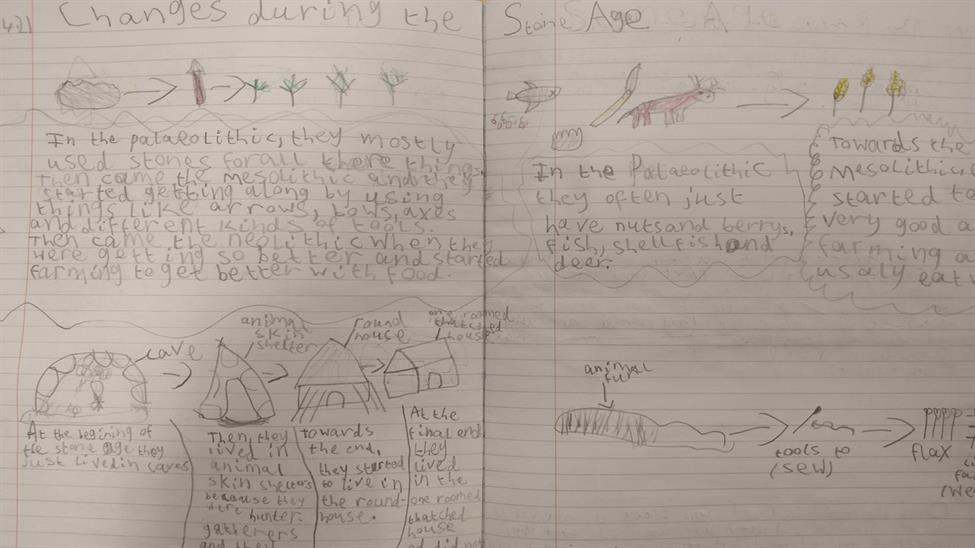 Changes during the Stone Age
In the palaeolithic, they mostly
used stones for all there things.
Then came the mesolithic and they
started getting along by using
things like arrows, bows, axes
and different kinds of tools.
Then came the neolithic when they
were getting so better and started
farming to get better with food.
In the Palaeolithic
they often just
have nuts and berrys,
fish, shell fish and
deer.
Towards the
mesolithic
started to
very good a
farming a
usaly eat
cave
animal
skin
shelter
round
house
one roomed
thatched
house
At the begining of
the stone age they
just lived in caves
Then, they
lived in
animal
skin shelters
because they
were hunter-
gatherers
and they
towards
the end,
they started
to live in
the round-
house.
At the
final end
they
lived
in the
one roomed
thatched
house
animal
fur
tools to
(sew)
flax